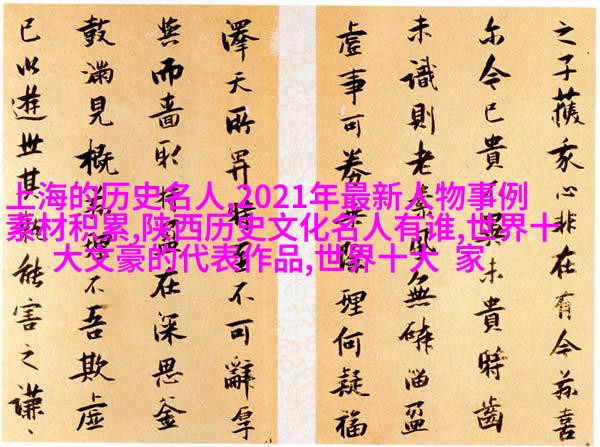 上海的历史名人,2021年最新人物事例
素材积累,陕西历史文化名人有谁,世界十
大文豪的代表作品,世界十大 家
之子 心非在 令 喜
尔令已貴 未貴時齒
未識則老 風無 盈
虛事可券 陰理何疑福
澤天所畀特 不可辭享
與而嗇取 盈在深思金
鼓滿見概 不吾欺虛
已以遊世其 能害之謙